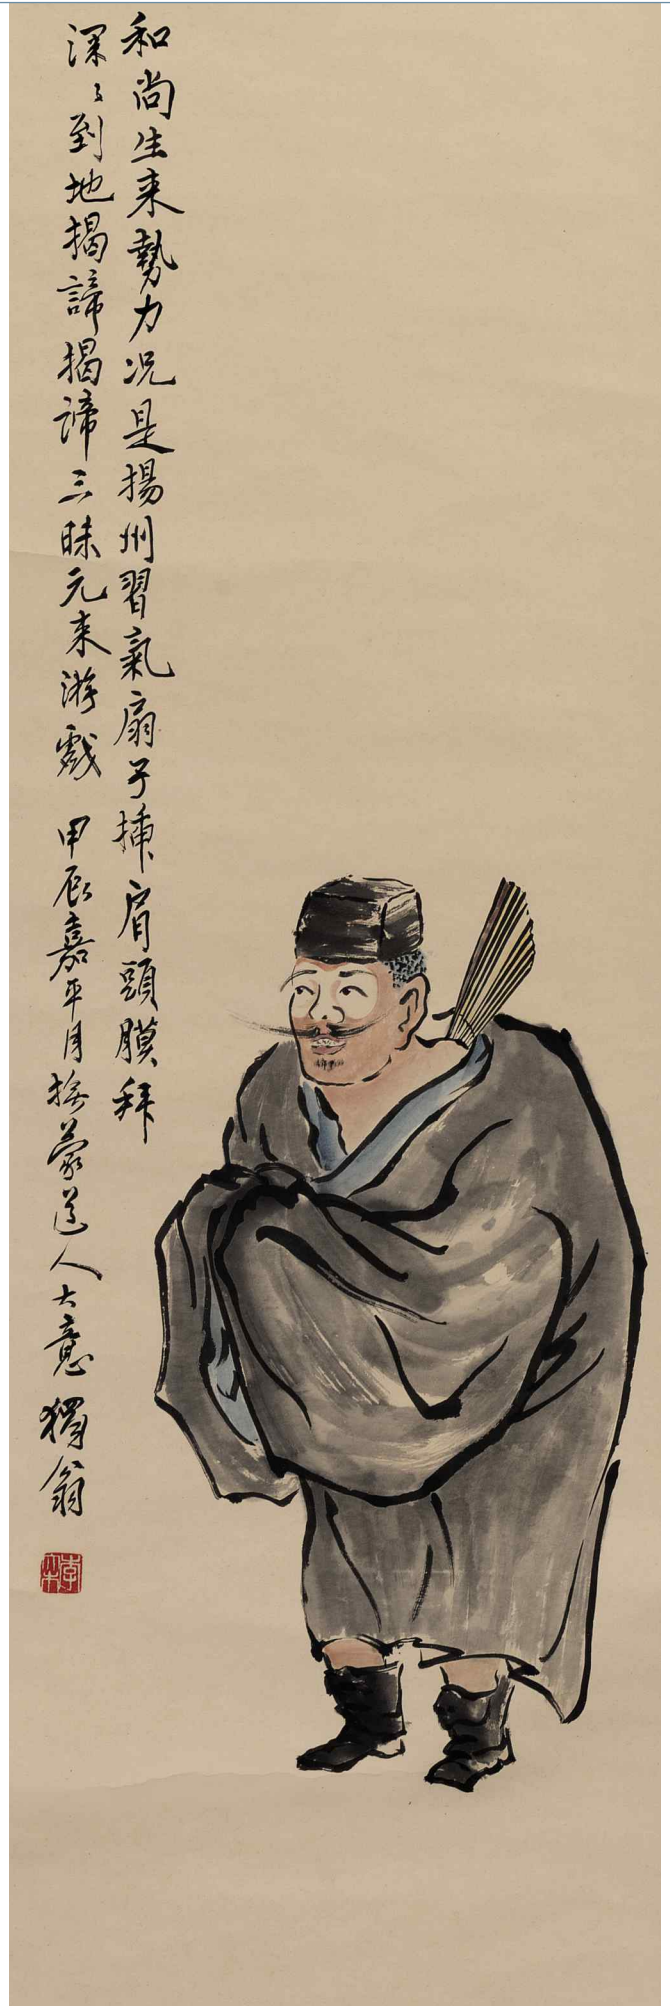 和尚生来勢力况是揚州習氣扇子挿肩頭膜拜
深〻到地揭諦揭諦三昧元来游戲 甲辰嘉平月撫蒙道人大意 獨翁